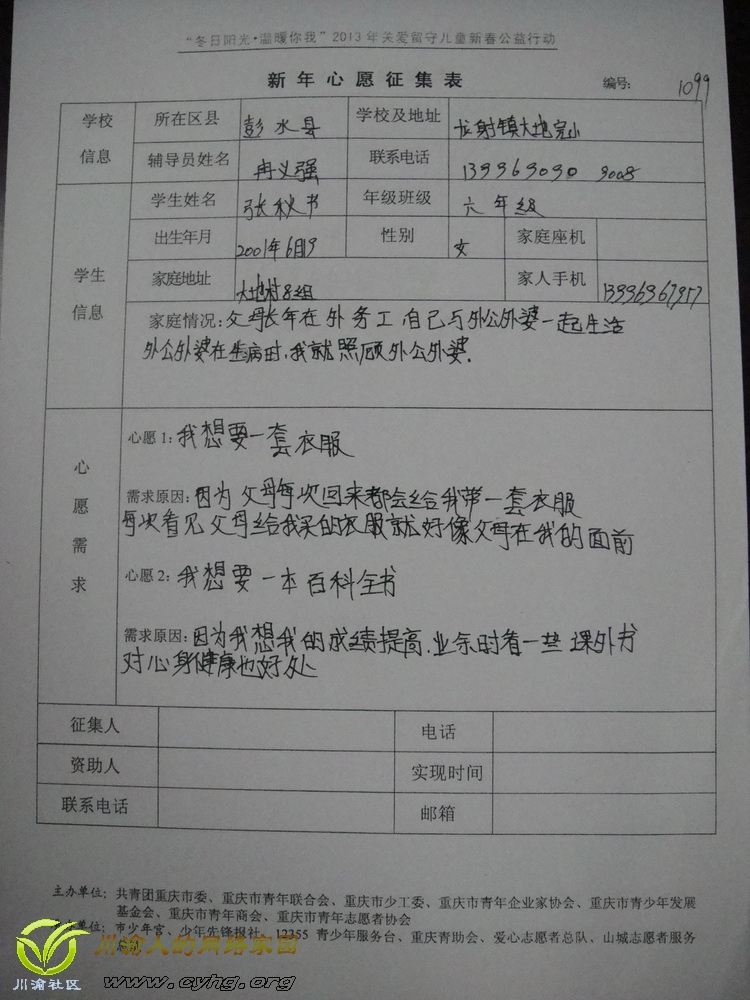 “冬日阳光·温暖你我”2013年关爱留守儿童新春公益行动
新年心愿征集表
编号: 1099
学校信息
所在区县 彭水县 学校及地址 龙射镇大地完小
辅导员姓名 冉义强 联系电话 139969090 9008
学生信息
学生姓名 张秋书 年级班级 六年级
出生年月 2001年6月19 性别 女 家庭座机
家庭地址 大地村8组 家人手机 13996967957
家庭情况: 父母长年在外务工 自己与外公外婆一起生活
外公外婆在生病时,我就照顾外公外婆.
心愿需求
心愿1: 我想要一套衣服
需求原因: 因为父母每次回来都会给我带一套衣服
每次看见父母给我买的衣服就好像父母在我的面前
心愿2: 我想要一本百科全书
需求原因: 因为我想我的成绩提高.业余时看一些课外书
对心身健康也好处
征集人 电话
资助人 实现时间
联系电话 邮箱
主办单位: 共青团重庆市委、重庆市青年联合会、重庆市少工委、重庆市青年企业家协会、重庆市青少年发展
基金会、重庆市青年商会、重庆市青年志愿者协会
单位: 市少年宫、少年先锋报社、12355青少年服务台、重庆青助会、爱心志愿者总队、山城志愿者服务
川渝人的网络家园
川渝社区
www.cyhg.org